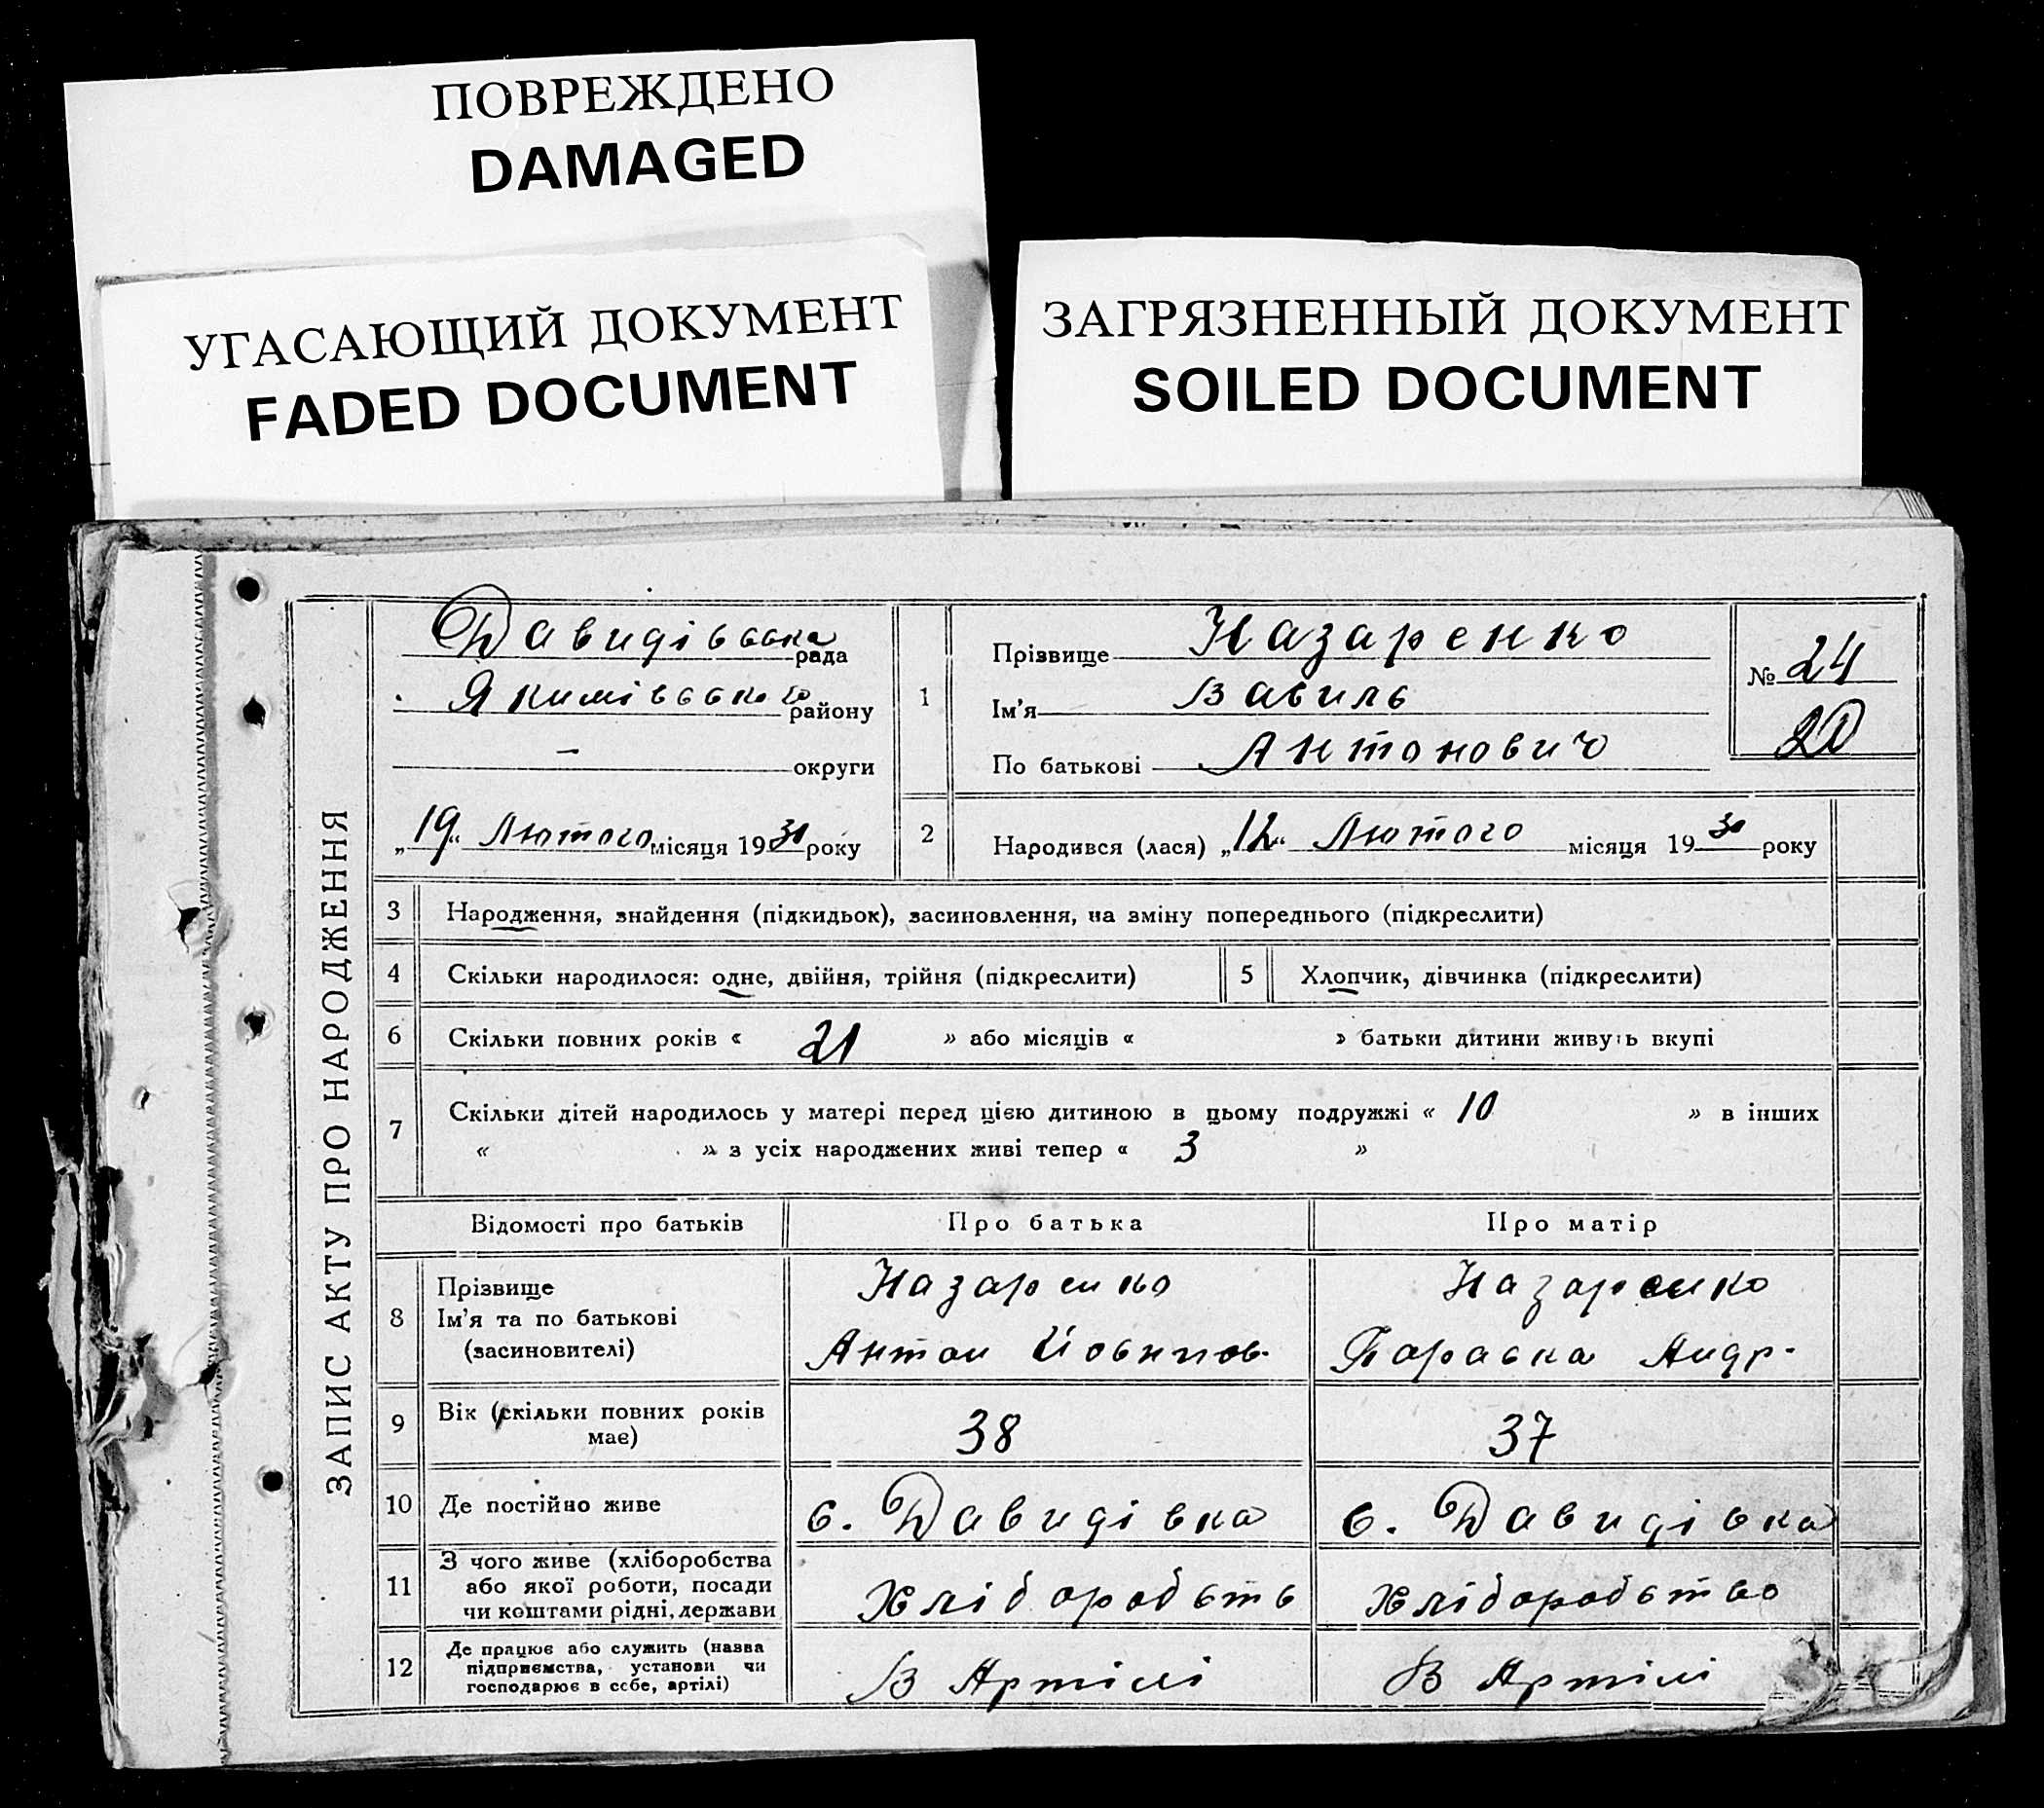 ПОВРЕЖДЕНО
DAMAGED
УГАСАЮЩИЙ ДОКУМЕНТ
FADED DOCUMENT
ЗАГРЯЗНЕННЫЙ ДОКУМЕНТ
SOILED DOCUMENT
ЗАПИС АКТУ ПРО НАРОДЖЕННЯ
Давидівська рада
Якимівсько го району
— округи
„19“ Лютого місяця 1930 року
1
Прізвище Назаренко
Ім'я Василь
По батькові Антонович
№ 24
20
2 Народився (лася) „12“ Лютого місяця 1930 року
3 Народження, знайдення (підкидьок), засиновлення, на зміну попереднього (підкреслити)
4 Скільки народилося: одне, двійня, трійня (підкреслити)
5 Хлопчик, дівчинка (підкреслити)
6 Скільки повних років « 21 » або місяців « » батьки дитини живуть вкупі
7 Скільки дітей народилось у матері перед цією дитиною в цьому подружжі « 10 » в інших
« » з усіх народжених живі тепер « 3 »
Відомості про батьків Про батька Про матір
8 Прізвище Назаренко Назаренко
Ім'я та по батькові
(засновителі) Антон Параска Андр.
9 Вік (скільки повних років
має) 38 37
10 Де постійно живе с. Давидівка с. Давидівка
11 З чого живе (хліборобства
або якої роботи, посади
чи коштами рідні, держави Хліборобств Хліборобство
12 Де працює або служить (назва
підприємства, установи чи
господарює в себе, артілі) В Артілі В Артілі